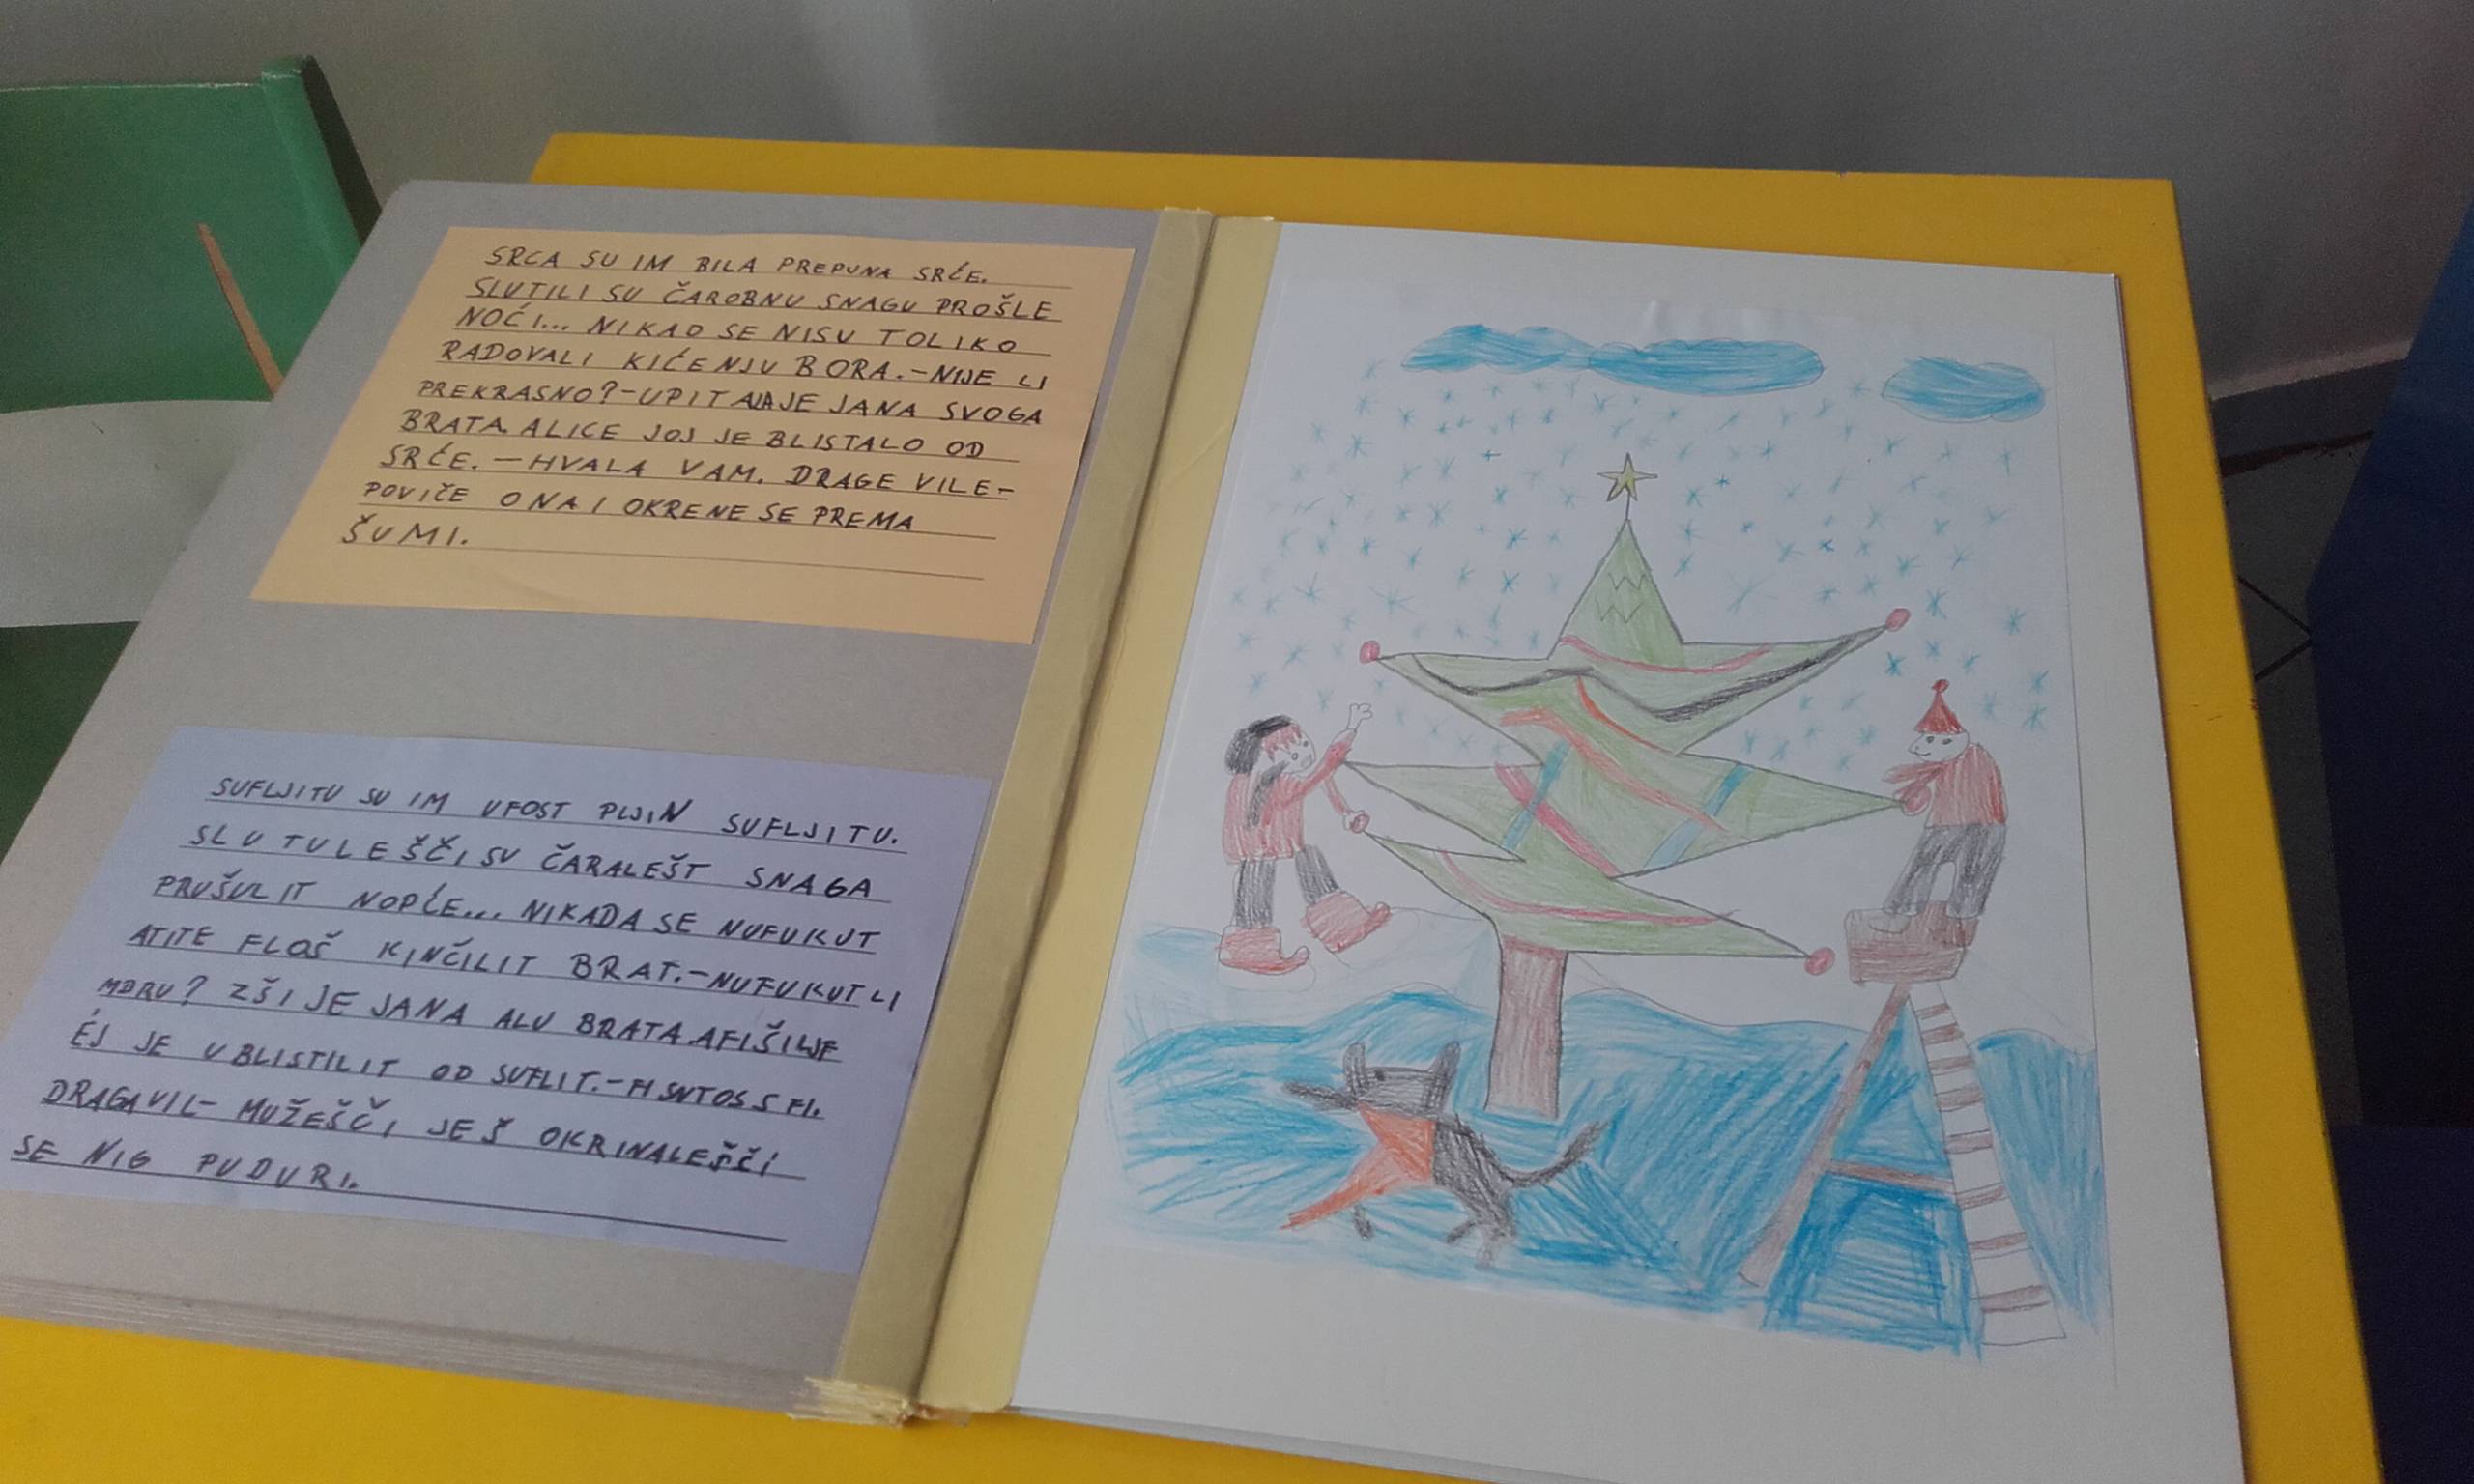 SRCA SU IM BILA PREPUNA SRĆE.
SLUTILI SU ČAROBNU SNAGU PROŠLE
NOĆI... NIKAD SE NISU TOLIKO
RADOVALI KIĆENJU BORA.-NIJE LI
PREKRASNO?-UPITALA JE JANA SVOGA
BRATA. ALICE JOJ JE BLISTALO OD
SRĆE.-HVALA VAM. DRAGE VILE-
POVIČE ONA I OKRENE SE PREMA
ŠUMI.
SUFLJITU SU IM UFOST PLJIN SUFLJITU.
SLUTULEŠČI SU ČARALEŠT SNAGA
PRUŠULIT NOPĆE... NIKADA SE NUFUKUT
ATITE FLOŠ KINČILIT BRAT.-NUFUKUT LI
MDRU? ZŠI JE JANA ALU BRATA. AFIŠILJE
ÉJ JE UBLISTILIT OD SUFLIT.-
DRAGA VIL- MUŽEŠČI JE Š OKRINALEŠČI
SE NIG PUDURI.